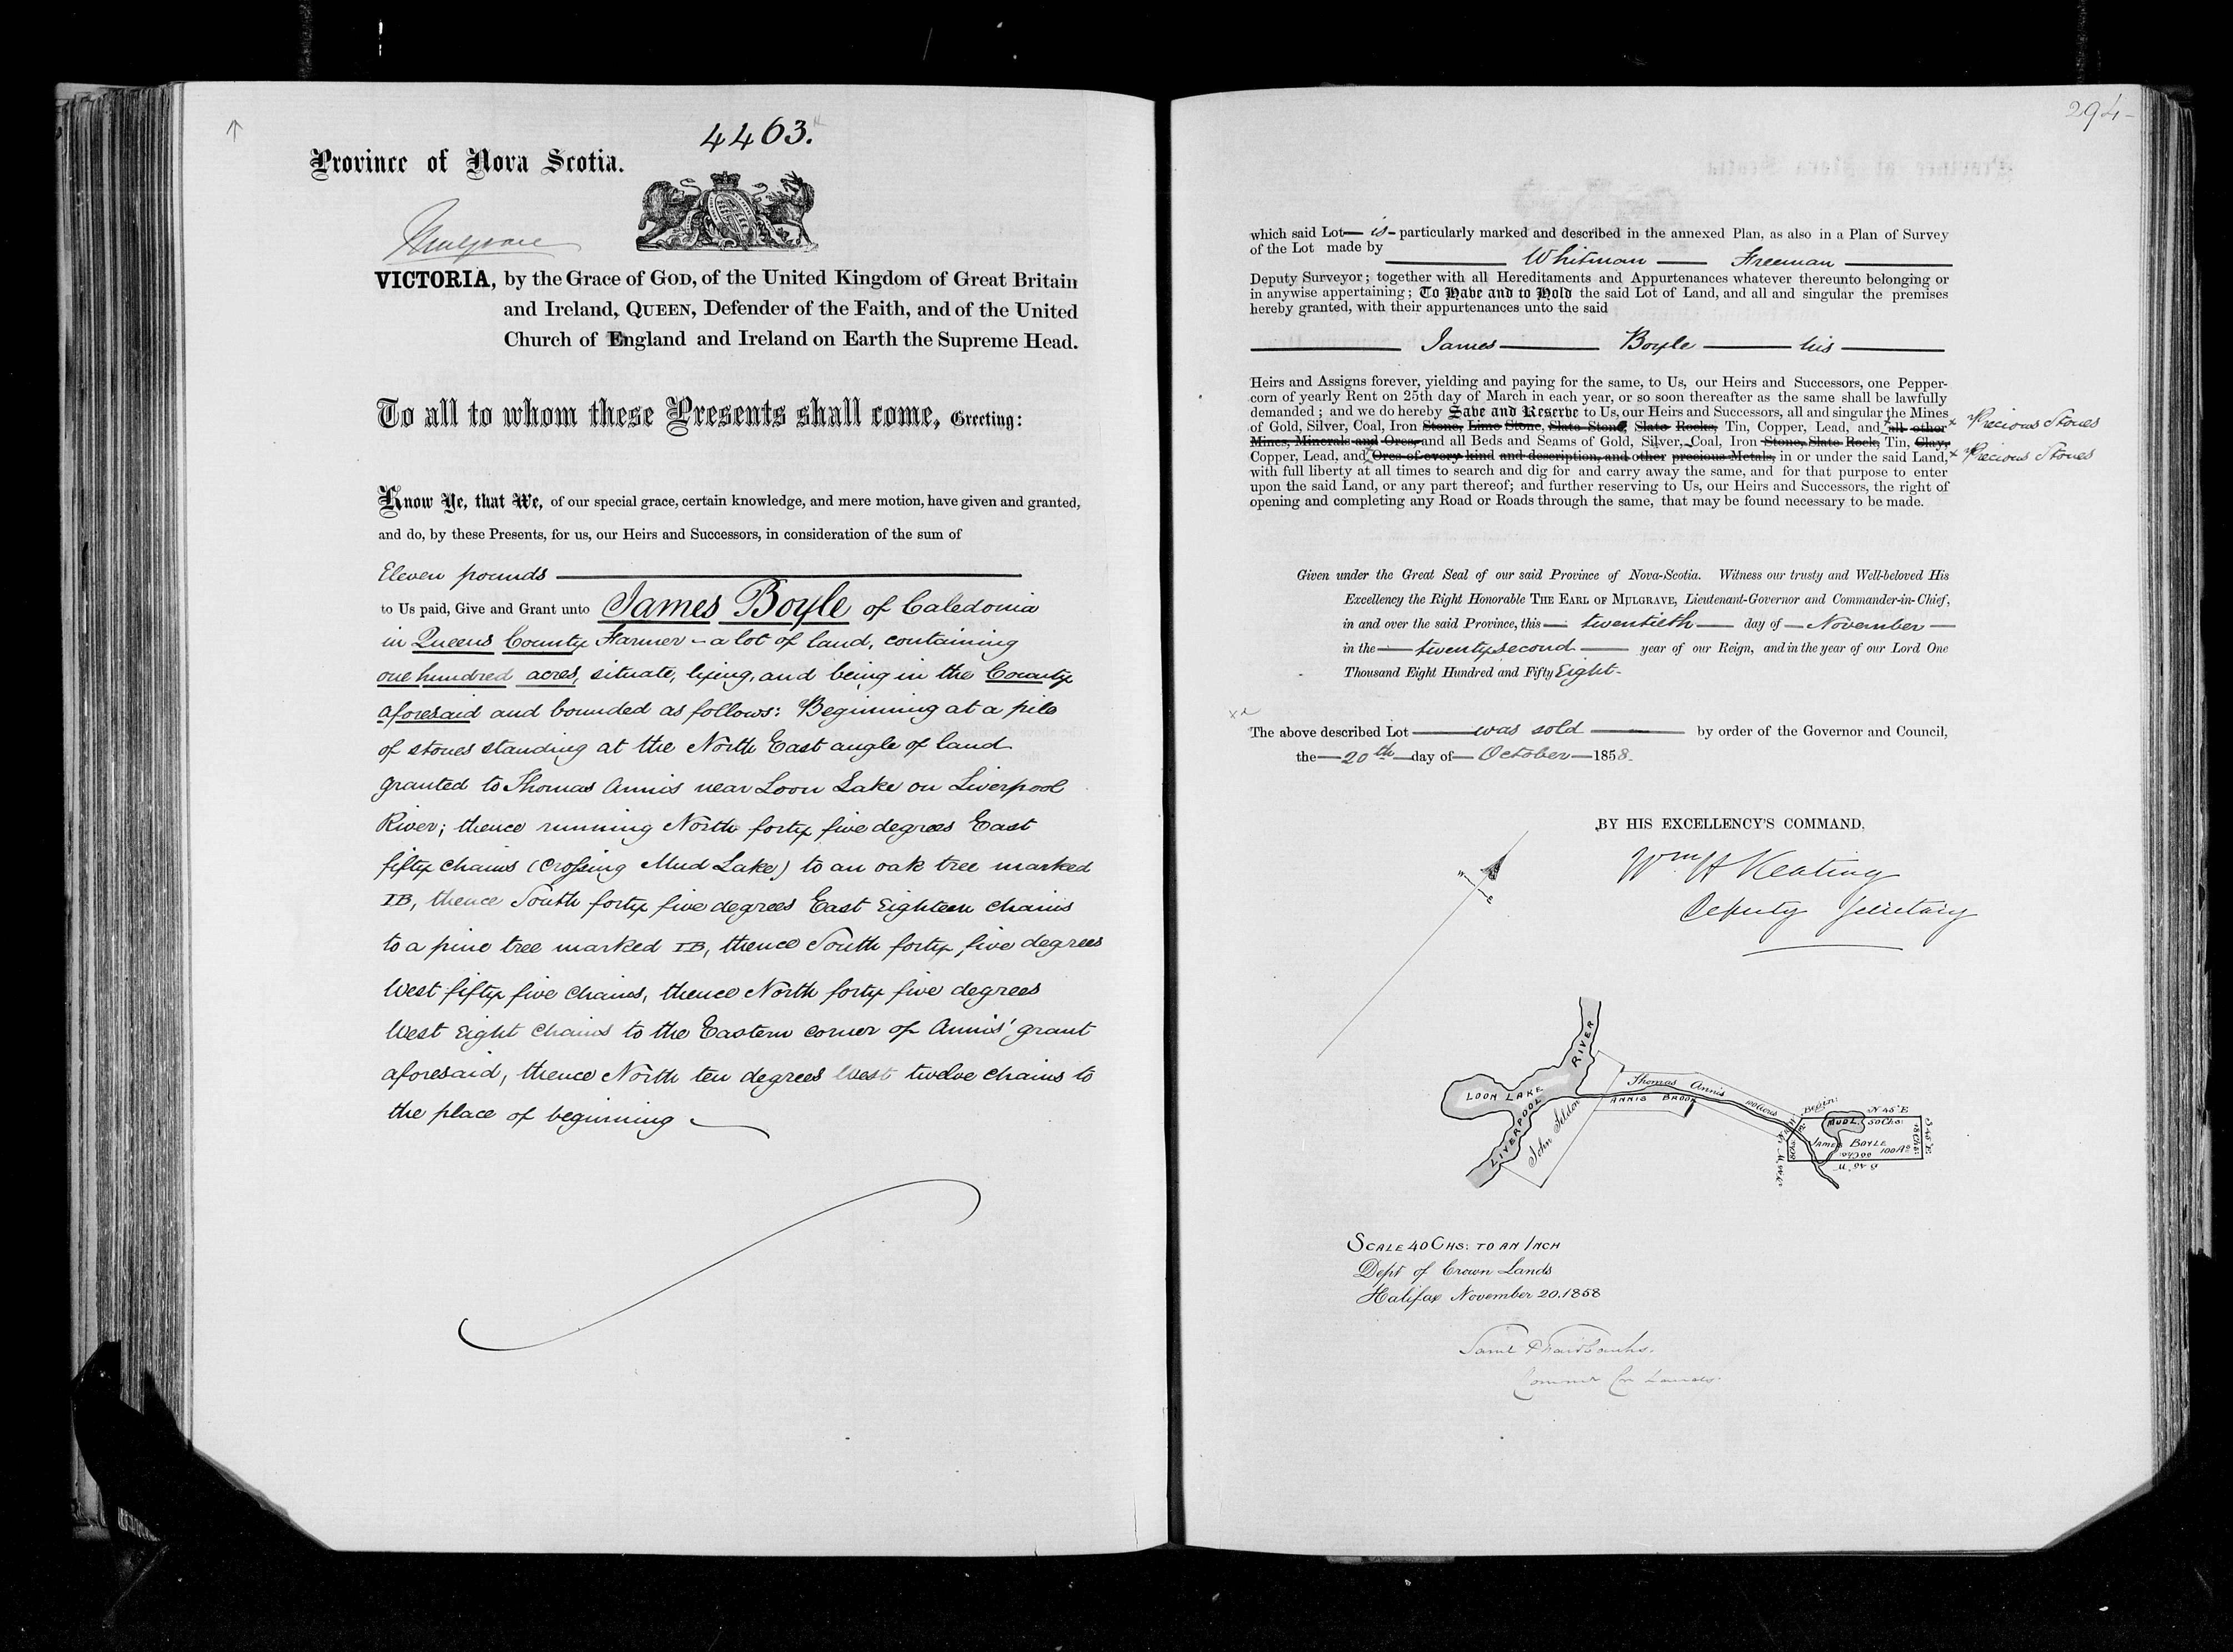 4463.
Province of Nova Scotia.
Mulgrave
VICTORIA, by the Grace of GOD, of the United Kingdom of Great Britain
and Ireland, QUEEN, Defender of the Faith, and of the United
Church of England and Ireland on Earth the Supreme Head.
To all to whom these Presents shall come, Greeting:
Know Ye, that We, of our special grace, certain knowledge, and mere motion, have given and granted,
and do, by these Presents, for us, our Heirs and Successors, in consideration of the sum of
Eleven pounds
to Us paid, Give and Grant unto James Boyle of Caledonia
in Queens County Farmer - a lot of land, containing
one hundred acres, situate, lying, and being in the County
aforesaid and bounded as follows: Beginning at a pile
of stones standing at the North East angle of land
granted to Thomas Annis near Loon Lake on Liverpool
River; thence running North forty five degrees East
fifty chains (Crossing Mud Lake) to an oak tree marked
IB, thence South forty five degrees East Eighteen chains
to a pine tree marked IB, thence South forty five degrees
West fifty five chains, thence North forty five degrees
West Eight chains to the Eastern corner of Annis' grant
aforesaid, thence North ten degrees West twelve chains to
the place of beginning
294
which said Lot is particularly marked and described in the annexed Plan, as also in a Plan of Survey
of the Lot made by Whitman Freeman
Deputy Surveyor; together with all Hereditaments and Appurtenances whatever thereunto belonging or
in anywise appertaining; To Have and to Hold the said Lot of Land, and all and singular the premises
hereby granted, with their appurtenances unto the said
James Boyle his
Heirs and Assigns forever, yielding and paying for the same, to Us, our Heirs and Successors, one Pepper-
corn of yearly Rent on 25th day of March in each year, or so soon thereafter as the same shall be lawfully
demanded; and we do hereby Save and Reserve to Us, our Heirs and Successors, all and singular the Mines
of Gold, Silver, Coal, Iron Stone, Lime Stone, Slate Stone, Slate Rocks, Tin, Copper, Lead, and all other x Precious Stones
Mines, Minerals and Ores, and all Beds and Seams of Gold, Silver, Coal, Iron Stone, Slate Rock, Tin, Clay,
Copper, Lead, and Ores of every kind and description, and other precious Metals, in or under the said Land, x Precious Stones
with full liberty at all times to search and dig for and carry away the same, and for that purpose to enter
upon the said Land, or any part thereof; and further reserving to Us, our Heirs and Successors, the right of
opening and completing any Road or Roads through the same, that may be found necessary to be made.
Given under the Great Seal of our said Province of Nova-Scotia. Witness our trusty and Well-beloved His
Excellency the Right Honorable THE EARL OF MULGRAVE, Lieutenant-Governor and Commander-in-Chief,
in and over the said Province, this twentieth day of November
in the twenty second year of our Reign, and in the year of our Lord One
Thousand Eight Hundred and Fifty Eight.
The above described Lot was sold by order of the Governor and Council,
the 20th day of October 1858.
BY HIS EXCELLENCY'S COMMAND,
Wm H Keating
Deputy Secretary
W
E
RIVER
LOON LAKE
LIVERPOOL
John Seldon
Thomas Annis
100 Acres
ANNIS BROOK
Begin:
N 45° E
MUD L.
50 Chs:
S 45° E
18 Chs:
JAMES BOYLE
100 Ac
55 Chs:
S 45° W
N 45° W
8 Chs
SCALE 40 CHS: TO AN INCH
Dept of Crown Lands
Halifax November 20. 1858
Saml P Fairbanks.
Commr Crn Lands.